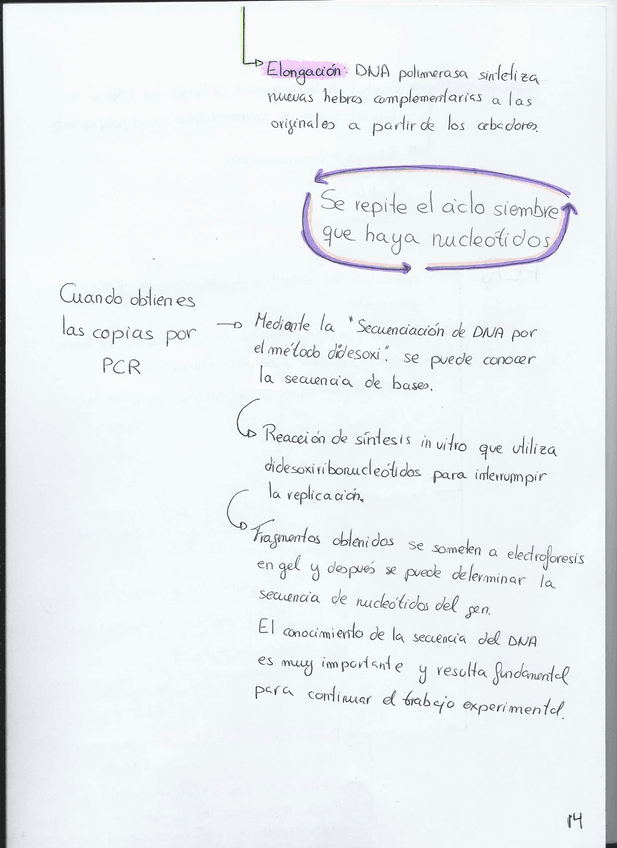 Elongación: DNA polimerasa sintetiza
nuevas hebras complementarias a las
originales a partir de los cebadores.
Se repite el ciclo siembre
que haya nucleótidos
Cuando obtienes
las copias por
PCR
Mediante la "Secuenciación de DNA por
el método didesoxi". se puede conocer
la secuencia de bases.
Reacción de síntesis in vitro que utiliza
didesoxirribonucleótidos para interrumpir
la replicación.
Fragmentos obtenidos se someten a electroforesis
en gel y después se puede determinar la
secuencia de nucleótidos del gen.
El conocimiento de la secuencia del DNA
es muy importante y resulta fundamental
para continuar el trabajo experimental.
14